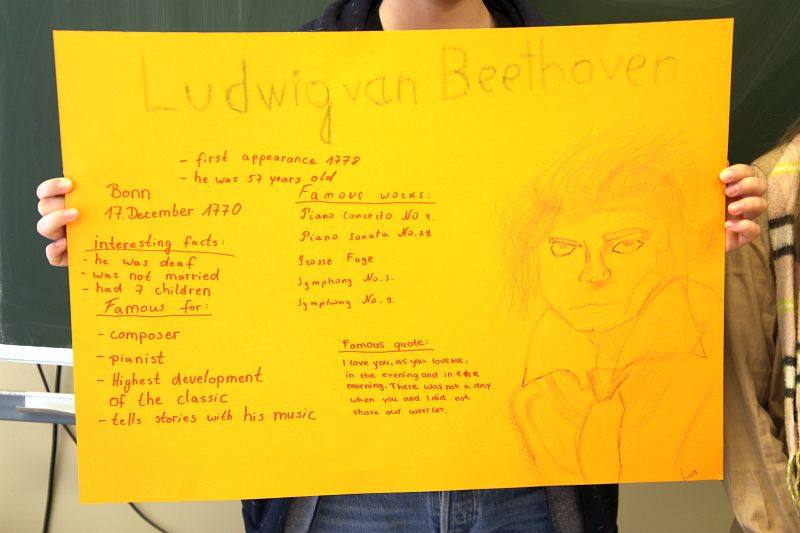 Ludwig van Beethoven
- first appearance 1778
- he was 57 years old
Bonn
17. December 1770
interesting facts:
- he was deaf
- was not married
- had 7 children
Famous for:
- composer
- pianist
- Highest development
of the classic
- tells stories with his music
Famous works:
Piano Concerto No. 1.
Piano Sonata No. 29.
Grosse Fuge
Symphony No. 3.
Symphony No. 9.
Famous quote:
I love you, as you love me,
in the evening and in the
morning. There was not a day
when you and I did not
share our worries.